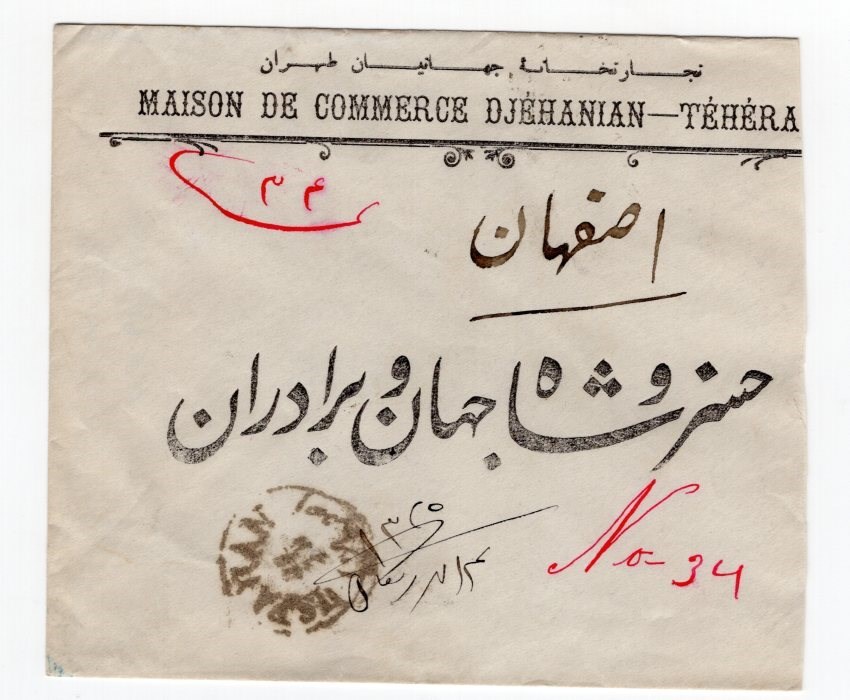 تجارتخانهٔ جهانیان طهران
MAISON DE COMMERCE DJÉHANIAN—TÉHÉRA
۳۴
اصفهان
خسرو شاه جهان و برادران
No- 34